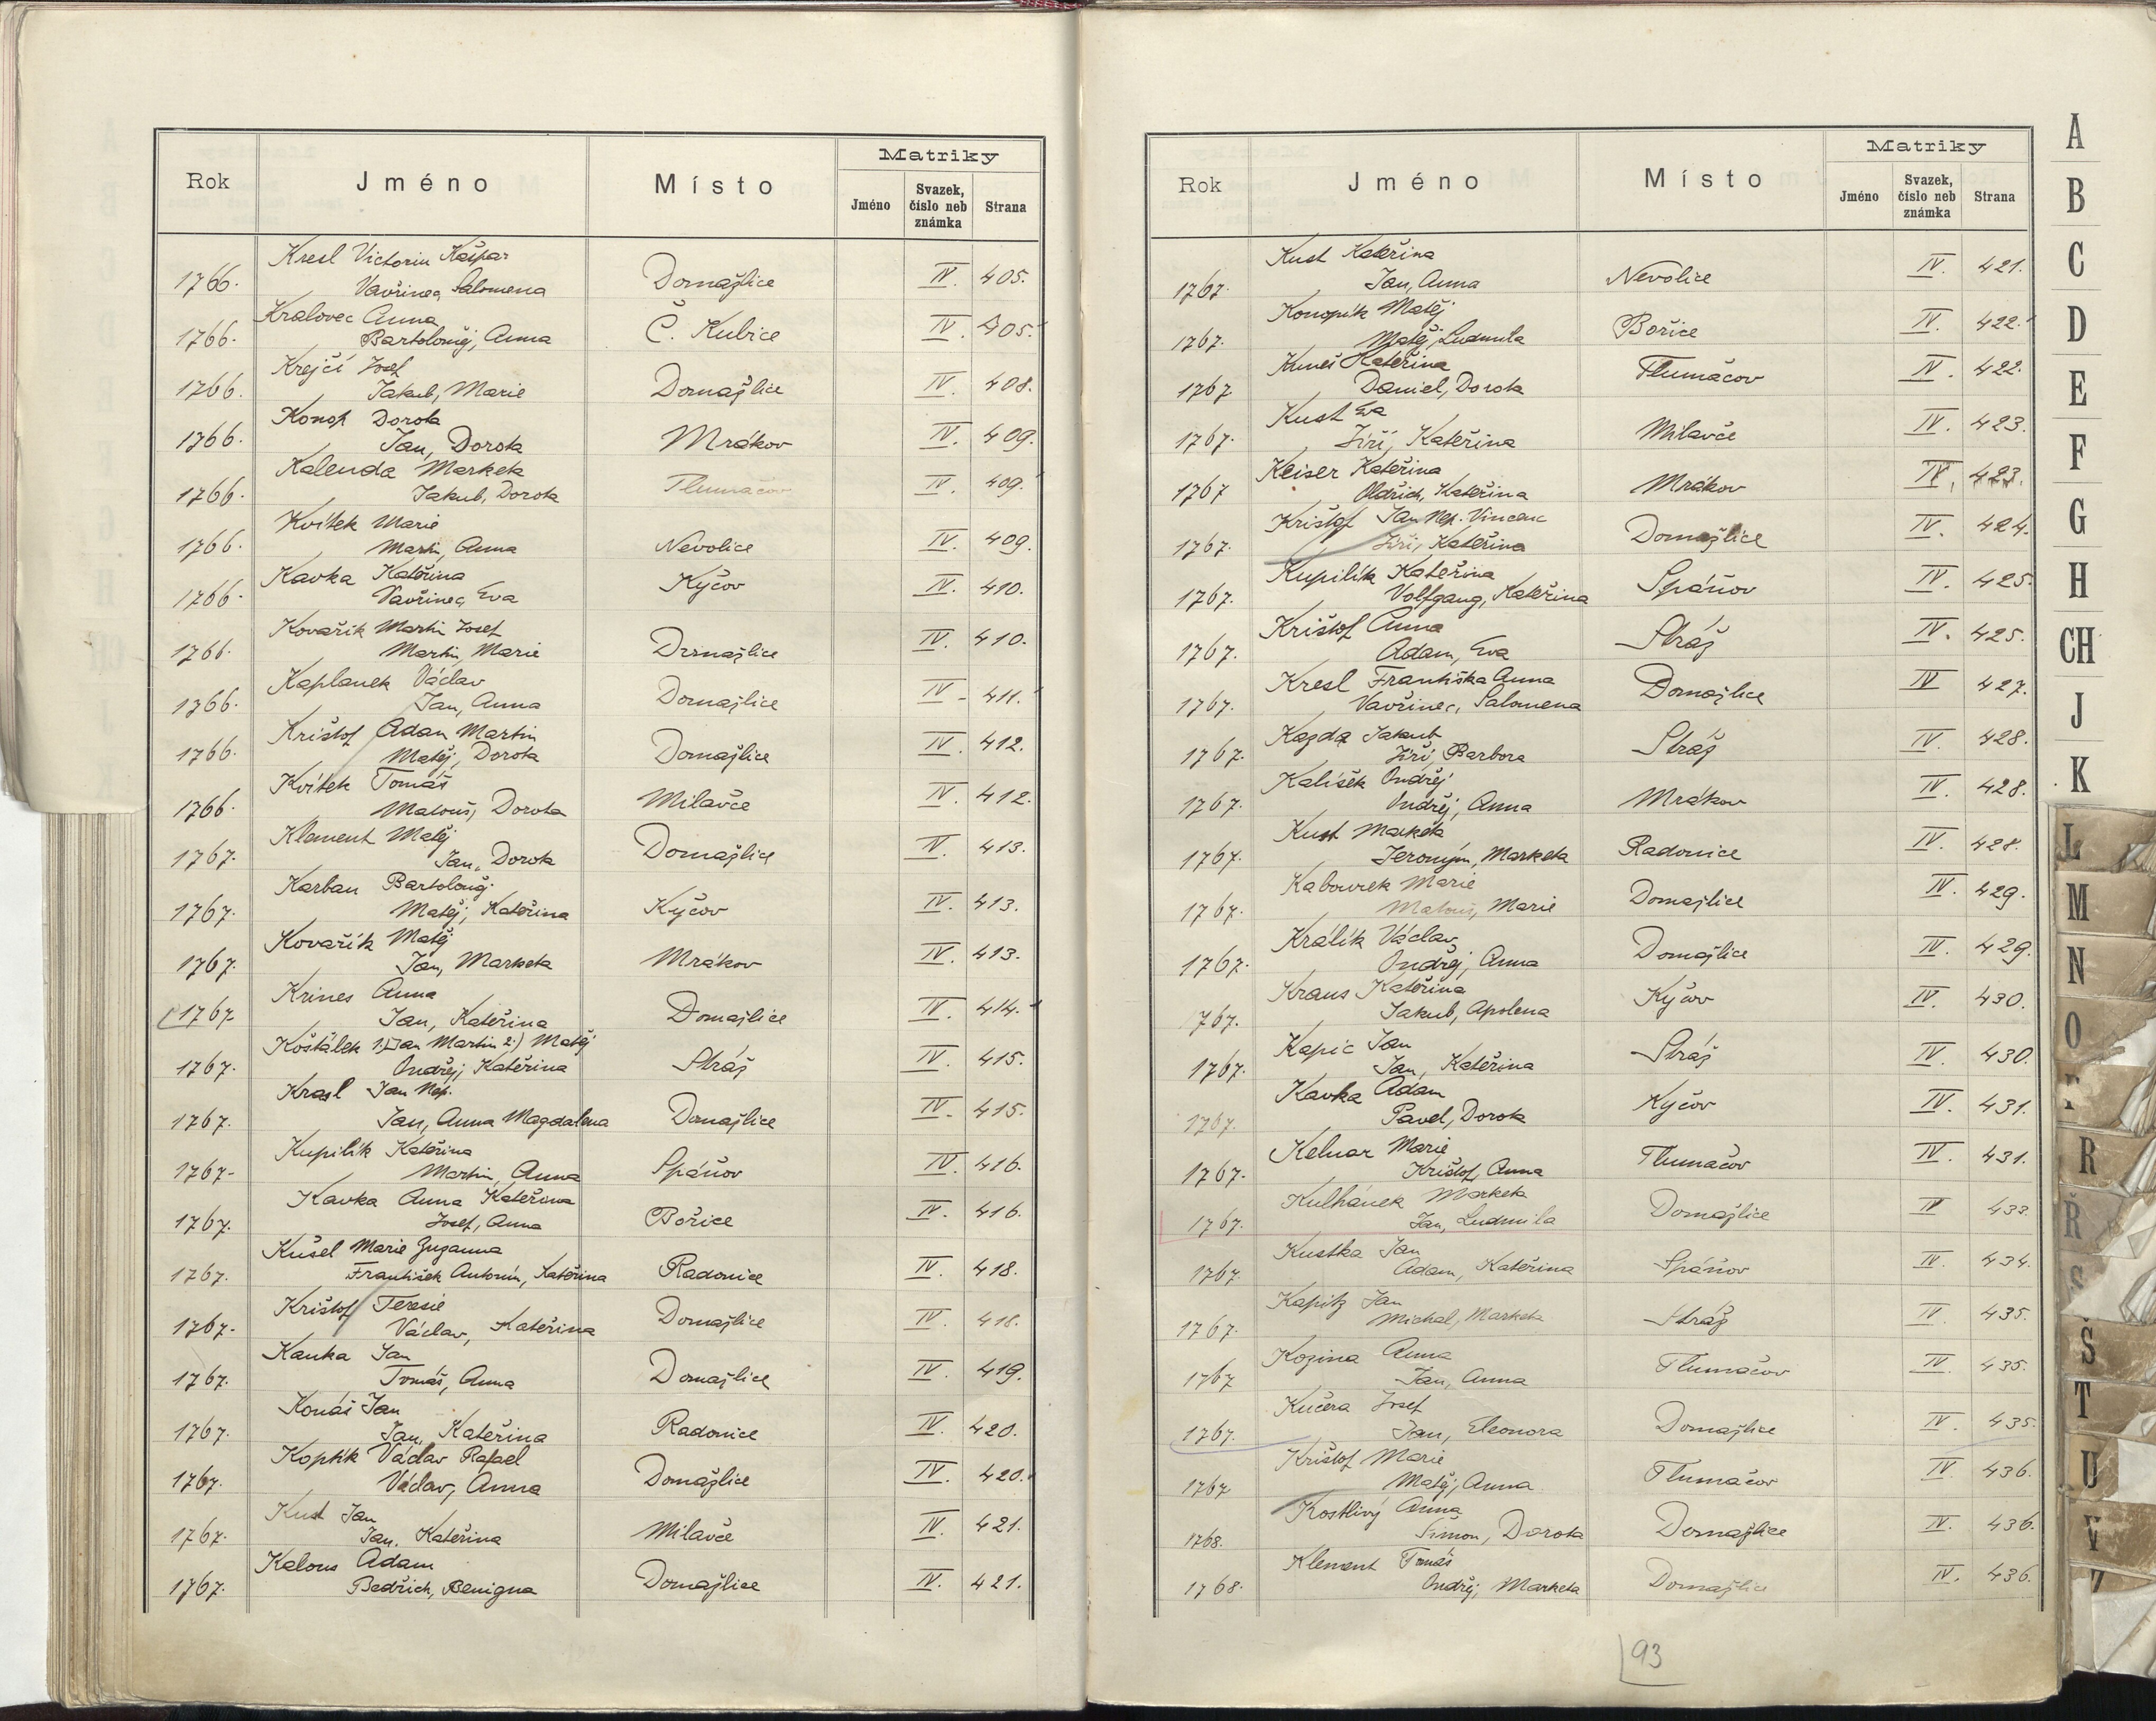 Matriky
Rok Jméno Místo Jméno Svazek, číslo neb známka Strana
Kresl Victorin Kašpar
1766. Vavřinec, Salomena Domažlice IV. 405.
Kralovec Anna
1766. Bartoloměj, Anna Č. Kubice IV. 405.
Krejčí Josef
1766. Jakub, Marie Domažlice IV. 408.
Konop Dorota
1766. Jan, Dorota Mrákov IV. 409.
Kalenda Marketa
1766. Jakub, Dorota Tlumačov IV. 409.
Kvítek Marie
1766. Martin, Anna Nevolice IV. 409.
Kavka Kateřina
1766. Vavřinec, Eva Kyčov IV. 410.
Kovařík Martin Josef
1766. Martin, Marie Domažlice IV. 410.
Kaplanek Václav
1766. Jan, Anna Domažlice IV. 411.
Krištof Adam Martin
1766. Matěj, Dorota Domažlice IV. 412.
Kvítek Tomáš
1766. Matouš, Dorota Milavče IV. 412.
Klement Matěj
1767. Jan, Dorota Domažlice IV. 413.
Karban Bartoloměj
1767. Matěj, Kateřina Kyčov IV. 413.
Kovařík Matěj
1767. Jan, Marketa Mrákov IV. 413.
Krines Anna
1767. Jan, Kateřina Domažlice IV. 414.
Košťálek 1.) Jan Martin 2.) Matěj
1767. Ondřej, Kateřina Stráž IV. 415.
Krasl Jan Nep.
1767. Jan, Anna Magdalena Domažlice IV. 415.
Kupilík Kateřina
1767. Martin, Anna Spáňov IV. 416.
Kavka Anna Kateřina
1767. Josef, Anna Bořice IV. 416.
Kušel Marie Zuzanna
1767. František Antonín, Kateřina Radonice IV. 418.
Krištof Teresie
1767. Václav, Kateřina Domažlice IV. 418.
Kauka Jan
1767. Tomáš, Anna Domažlice IV. 419.
Konáš Jan
1767. Jan, Kateřina Radonice IV. 420.
Koptik Václav Rafael
1767. Václav, Anna Domažlice IV. 420.
Kust Jan
1767. Jan, Kateřina Milavče IV. 421.
Kalous Adam
1767. Bedřich, Benigna Domažlice IV. 421.
Matriky
Rok Jméno Místo Jméno Svazek, číslo neb známka Strana
Kust Kateřina
1767. Jan, Anna Nevolice IV. 421.
Konopík Matěj
1767. Matěj, Ludmila Bořice IV. 422.
Kuneš Kateřina
1767. Daniel, Dorota Tlumačov IV. 422.
Kust Eva
1767. Jiří, Kateřina Milavče IV. 423.
Keiser Kateřina
1767 Oldřich, Kateřina Mrákov IV. 423.
Krištof Jan Nep. Vincenc
1767. Jiří, Kateřina Domažlice IV. 424.
Kupilík Kateřina
1767. Volfgang, Kateřina Spáňov IV. 425.
Krištof Anna
1767. Adam, Eva Stráž IV. 425.
Kresl Františka Anna
1767. Vavřinec, Salomena Domažlice IV 427.
Kazda Jakub
1767. Jiří, Barbora Stráž IV. 428.
Kalíšek Ondřej
1767. Ondřej, Anna Mrákov IV. 428.
Kust Marketa
1767. Jeroným, Marketa Radonice IV. 428.
Kabourek Marie
1767. Matouš, Marie Domažlice IV. 429.
Králík Václav
1767. Ondřej, Anna Domažlice IV. 429.
Kraus Kateřina
1767. Jakub, Apolena Kyčov IV. 430.
Kapic Jan
1767. Jan, Kateřina Stráž IV. 430.
Kavka Adam
1767. Pavel, Dorota Kyčov IV. 431.
Kelnar Marie
1767. Krištof, Anna Tlumačov IV. 431.
Kulhánek Marketa
1767. Jan, Ludmila Domažlice IV 433.
Kustka Jan
1767. Adam, Kateřina Spáňov IV. 434.
Kapitz Jan
1767. Michal, Marketa Stráž IV 435.
Kozina Anna
1767 Jan, Anna Tlumačov IV 435.
Kučera Josef
1767. Jan, Eleonora Domažlice IV. 435.
Krištof Marie
1767 Matěj, Anna Tlumačov IV. 436.
Kostlivý Anna
1768. Šimon, Dorota Domažlice IV. 436.
Klement Tomáš
1768. Ondřej, Marketa Domažlice IV. 436.
93
A
B
C
D
E
F
G
H
CH
J
K
L
M
N
O
P
R
Ř
S
Š
T
U
V